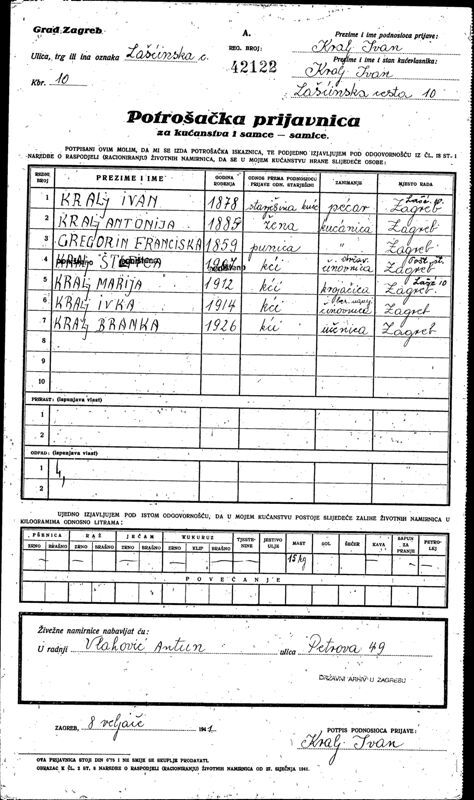 Grad Zagreb
A.
Prezime i ime podnosioca prijave:
Kralj Ivan
Ulica, trg ili ina oznaka Lašćinska c.
REG. BROJ:
42122
Prezime i ime i stan kućevlasnika:
Kralj Ivan
Kbr. 10
Lašćinska cesta 10
Potrošačka prijavnica
za kućanstva i samce — samice.
POTPISANI OVIM MOLIM, DA MI SE IZDA POTROŠAČKA ISKAZNICA, TE PODJEDNO IZJAVLJUJEM POD ODGOVORNOŠĆU IZ ČL. 15 ST. 1
NAREDBE O RASPODJELI (RACIONIRANJU) ŽIVOTNIH NAMIRNICA, DA SE U MOJEM KUĆANSTVU HRANE SLIJEDEĆE OSOBE:
REDNI BROJ PREZIME I IME GODINA ROĐENJA ODNOS PREMA PODNOSIOCU PRIJAVE ODN. STARJEŠINI ZANIMANJE MJESTO RADA
1 KRALJ IVAN 1878 starješina kuće pećar Zagreb
2 KRALJ ANTONIJA 1885 žena kućanica Zagreb
3 GREGORIN FRANCISKA 1859 punica " Zagreb
4 KRALJ 1907 kći činovnica Zagreb
5 KRALJ MARIJA 1912 kći krojačica Zagreb
6 KRALJ IVKA 1914 kći činovnica Zagreb
7 KRALJ BRANKA 1926 kći učnica Zagreb
8
9
10
PRIRAST: (ispunjava vlast)
1
2
OTPAD: (ispunjava vlast)
1 4,
2
UJEDNO IZJAVLJUJEM POD ISTOM ODGOVORNOŠĆU, DA U MOJEM KUĆANSTVU POSTOJE SLIJEDEĆE ZALIHE ŽIVOTNIH NAMIRNICA U
KILOGRAMIMA ODNOSNO LITRAMA:
PŠENICA RAŽ JEČAM KUKURUZ TJESTENINE JESTIVO ULJE MAST SOL ŠEĆER KAVA SAPUN ZA PRANJE PETROLEJ
ZRNO BRAŠNO ZRNO BRAŠNO ZRNO BRAŠNO ZRNO KLIP BRAŠNO
15 kg
POVEĆANJE
Živežne namirnice nabavljat ću:
U radnji Vlahović Antun ulica Petrova 49
DRŽAVNI ARHIV U ZAGREBU
ZAGREB, 8 veljače 1941
POTPIS PODNOSIOCA PRIJAVE:
Kralj Ivan
OVA PRIJAVNICA STOJI DIN 0'75 I NE SMIJE SE SKUPLJE PRODAVATI.
OBRAZAC K ČL. 2 ST. 2 NAREDBE O RASPODJELI (RACIONIRANJU) ŽIVOTNIH NAMIRNICA OD 27. SIJEČNJA 1941.